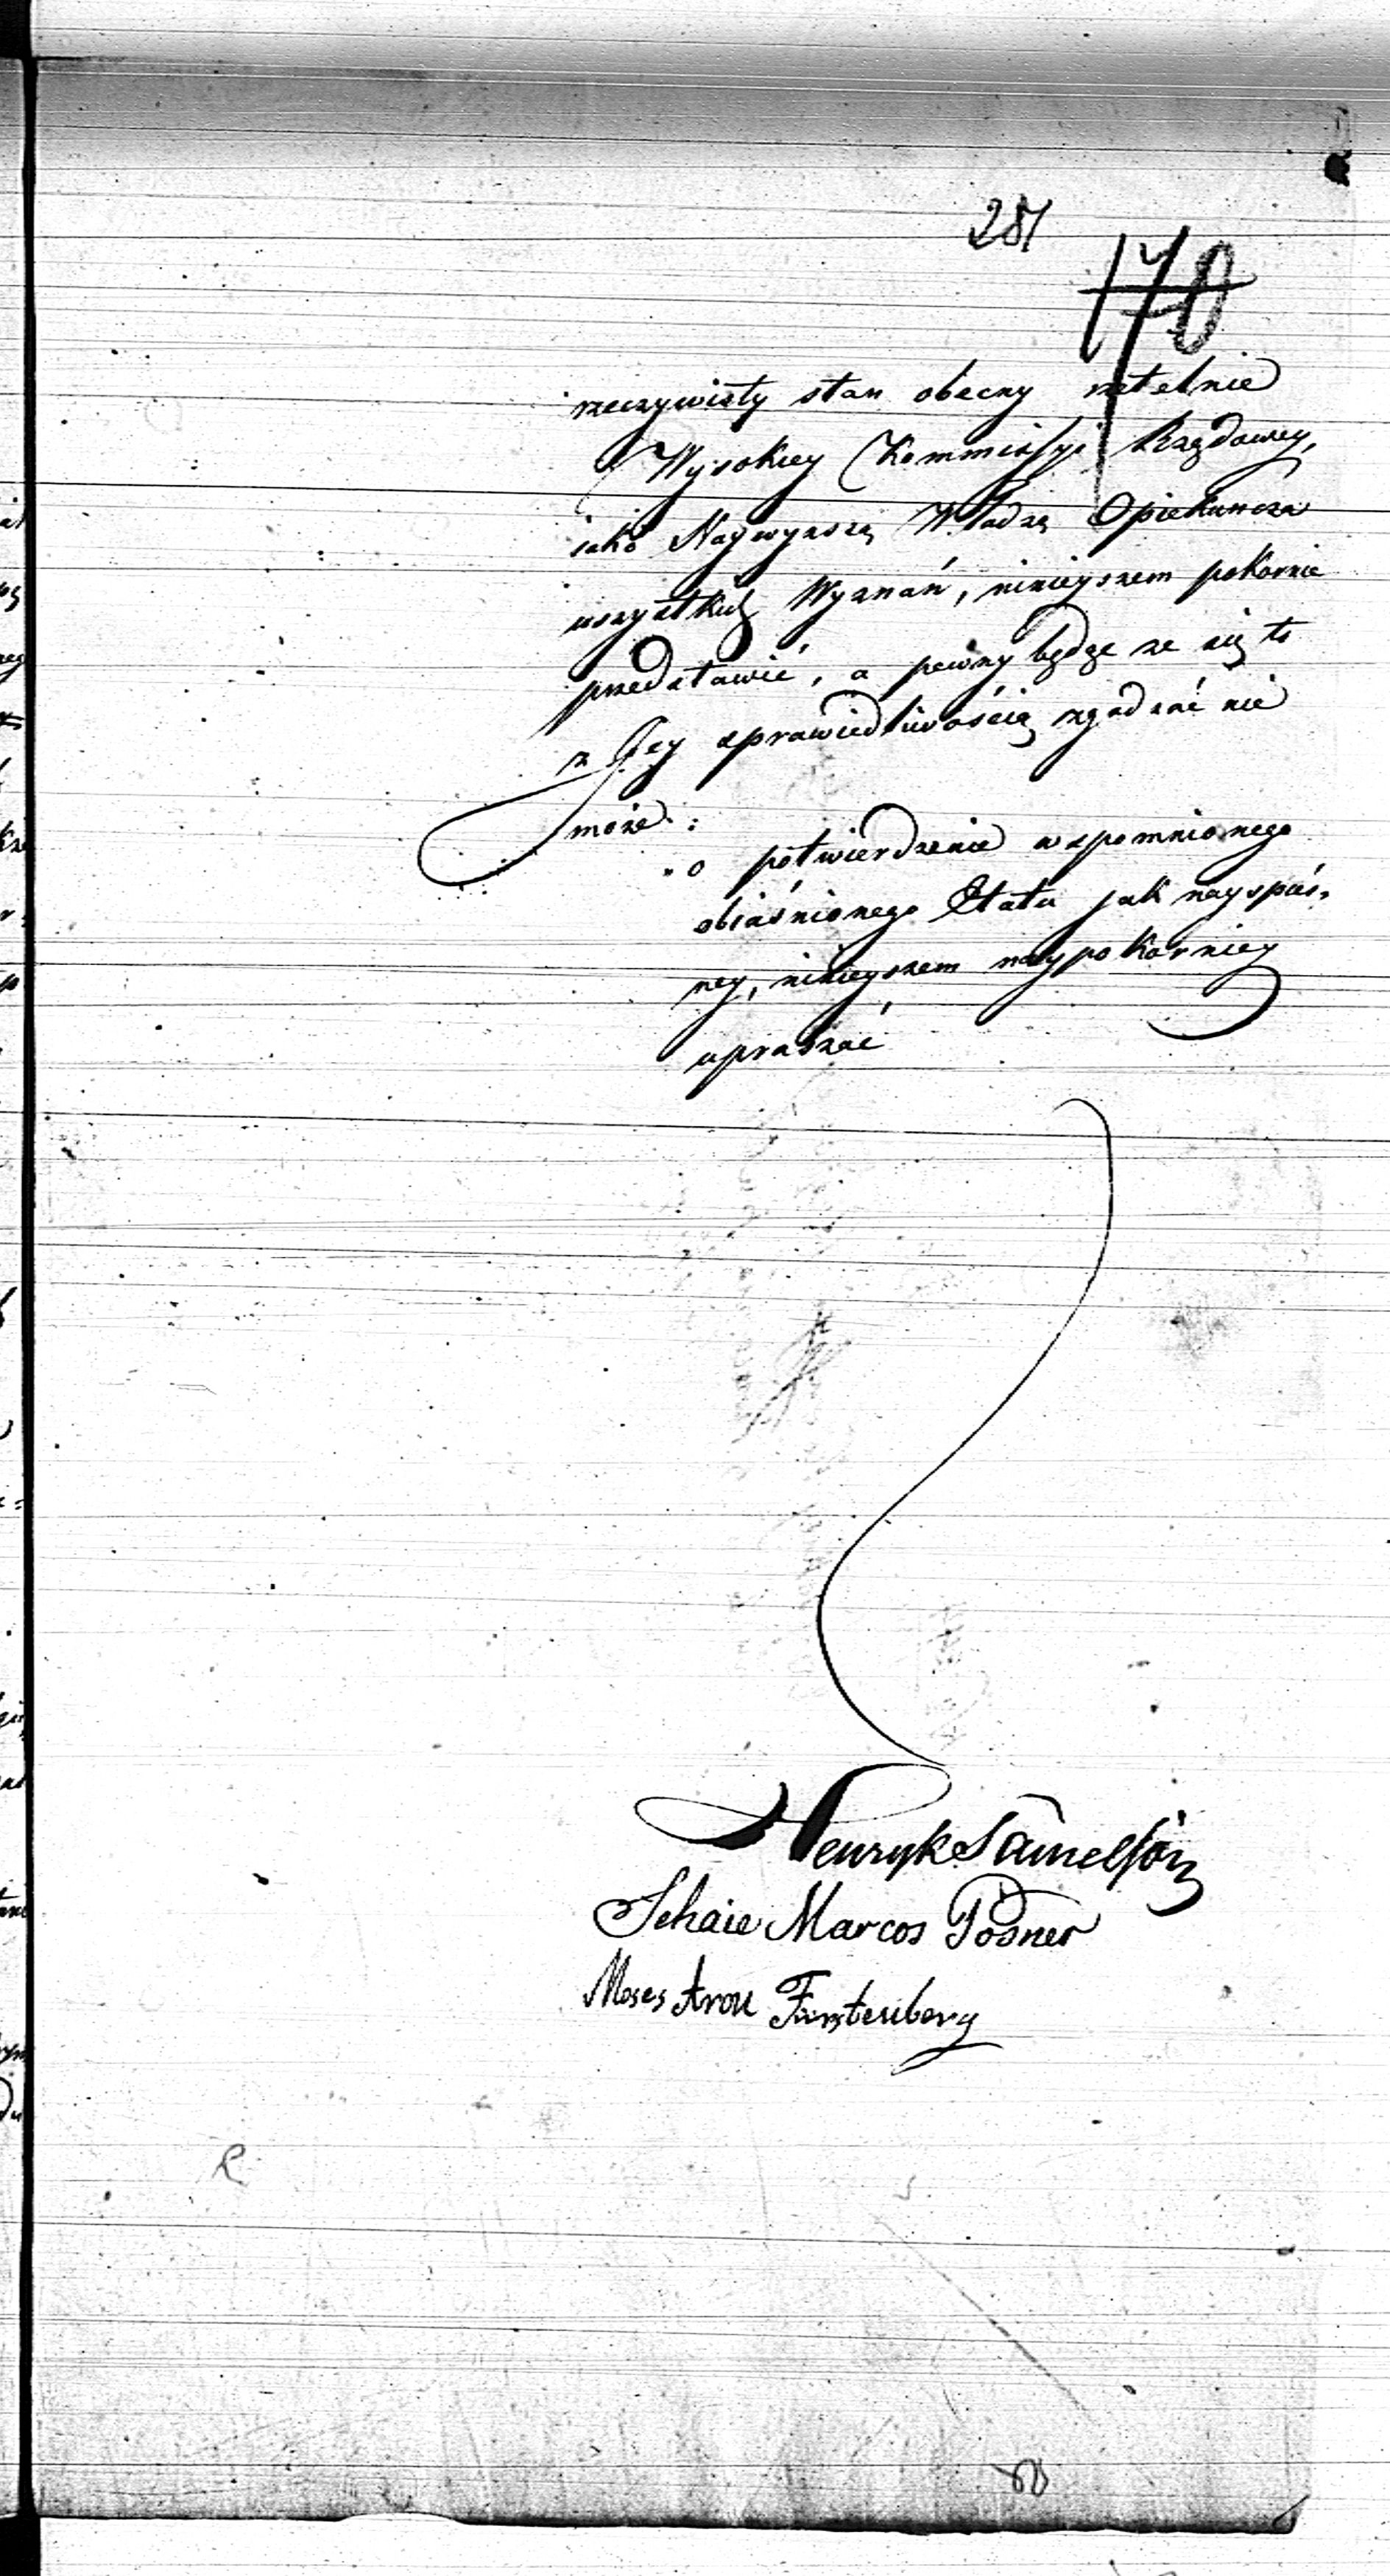 281
170
rzeczywisty stan obecny rzetelnie
Wysokiey Kommissyi Rządowey,
iako Naywyższą Władzę Opiekunczą
wszystkich Wyznań, ninieyszem pokornie
przedstawić, a pewny będąc ze się to
z Jey sprawiedliwością zgadzać nie
może:
"o potwierdzenie wspomnionego
obiaśnionego Etatu jak nayspiés,
ney, ninieyszem naypokorniey
upraszać
Henryk Samelson
Schaie Marcos Posner
Moses Aron Fürstenberg
R